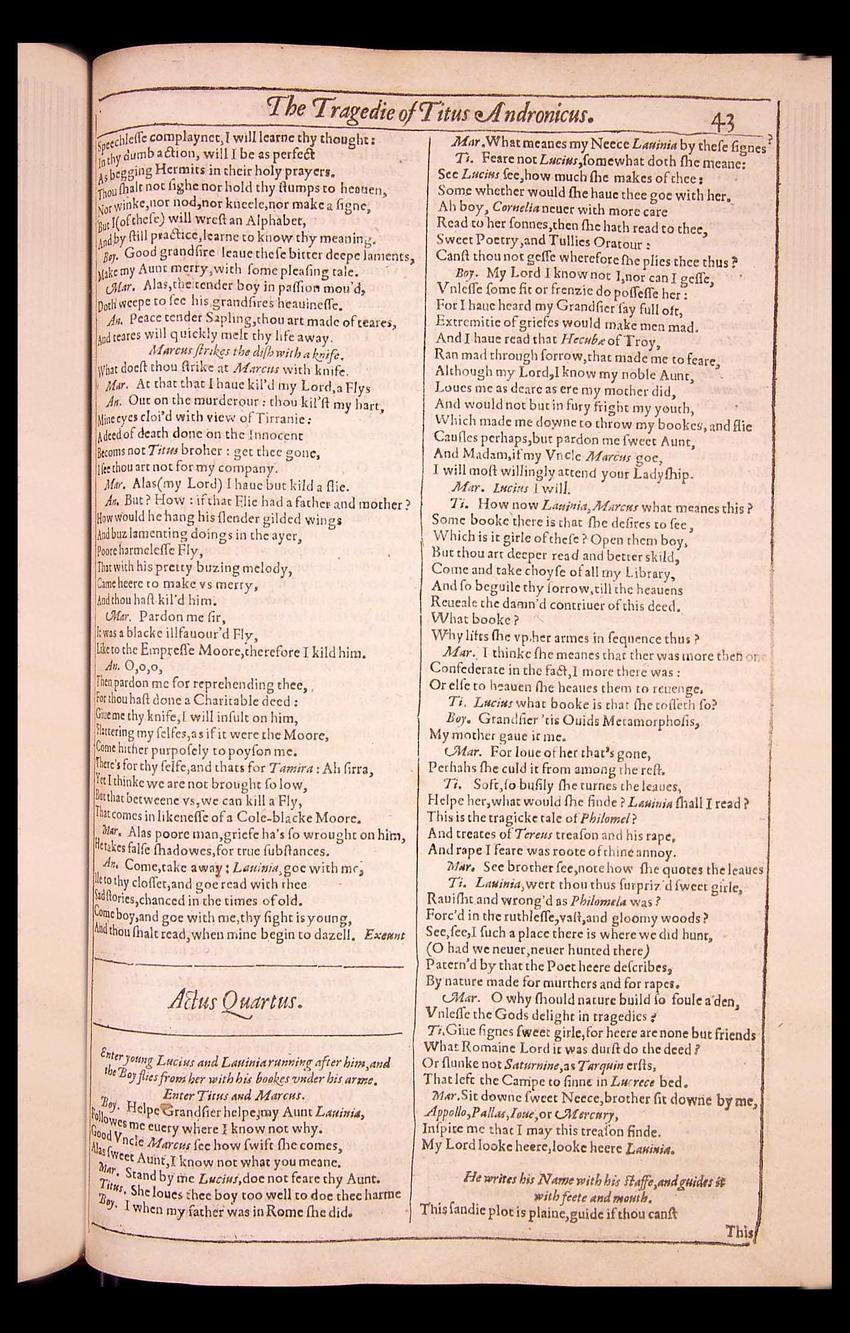 The Tragedie of Titus Andronicus.
43
Speechlesse complaynet, I will learne thy thought:
In thy dumb action, will I be as perfect
As begging Hermits in their holy prayers.
Thou shalt not sighe nor hold thy stumps to heauen,
Nor winke, nor nod, nor kneele, nor make a signe,
But I (of these) will wrest an Alphabet,
And by still practice, learne to know thy meaning.
Boy. Good grandsire leaue these bitter deepe laments,
Make my Aunt merry, with some pleasing tale.
Mar. Alas, the tender boy in passion mou'd,
Doth weepe to see his grandsires heauinesse.
An. Peace tender Sapling, thou art made of teares,
And teares will quickly melt thy life away.
Marcus strikes the dish with a knife.
What doest thou strike at Marcus with knife.
Mar. At that that I haue kil'd my Lord, a Flys
An. Out on the murderour: thou kil'st my hart,
Mine eyes cloi'd with view of Tirranie:
A deed of death done on the Innocent
Becoms not Titus broher: get thee gone,
I see thou art not for my company.
Mar. Alas (my Lord) I haue but kild a flie.
An. But? How: if that Flie had a father and mother?
How would he hang his slender gilded wings
And buz lamenting doings in the ayer,
Poore harmelesse Fly,
That with his pretty buzing melody,
Came heere to make vs merry,
And thou hast kil'd him.
Mar. Pardon me sir,
It was a blacke illfauour'd Fly,
Like to the Empresse Moore, therefore I kild him.
An. O, o, o,
Then pardon me for reprehending thee,
For thou hast done a Charitable deed:
Giue me thy knife, I will insult on him,
Flattering my selfes, as if it were the Moore,
Come hither purposely to poyson me.
There's for thy selfe, and thats for Tamira: Ah sirra,
Yet I thinke we are not brought so low,
But that betweene vs, we can kill a Fly,
That comes in likenesse of a Cole-blacke Moore.
Mar. Alas poore man, griefe ha's so wrought on him,
He takes false shadowes, for true substances.
An. Come, take away: Lauinia, goe with me,
Ile to thy closset, and goe read with thee
Sad stories, chanced in the times of old.
Come boy, and goe with me, thy sight is young,
And thou shalt read, when mine begin to dazell. Exeunt
Actus Quartus.
Enter young Lucius and Lauinia running after him, and
the Boy flies from her with his bookes vnder his arme.
Enter Titus and Marcus.
Boy. Helpe Grandsier helpe, my Aunt Lauinia,
Followes me euery where I know not why.
Good Vncle Marcus see how swift she comes,
Alas sweet Aunt, I know not what you meane.
Mar. Stand by me Lucius, doe not feare thy Aunt.
Titus. She loues thee boy too well to doe thee harme
Boy. I when my father was in Rome she did.
Mar. What meanes my Neece Lauinia by these signes?
Ti. Feare not Lucius, somewhat doth she meane:
See Lucius see, how much she makes of thee:
Some whether would she haue thee goe with her.
Ah boy, Cornelia neuer with more care
Read to her sonnes, then she hath read to thee,
Sweet Poetry, and Tullies Oratour:
Canst thou not gesse wherefore she plies thee thus?
Boy. My Lord I know not I, nor can I gesse,
Vnlesse some fit or frenzie do possesse her:
For I haue heard my Grandsier say full oft,
Extremitie of griefes would make men mad.
And I haue read that Hecubæ of Troy,
Ran mad through sorrow, that made me to feare,
Although my Lord, I know my noble Aunt,
Loues me as deare as ere my mother did,
And would not but in fury fright my youth,
Which made me downe to throw my bookes, and flie
Causles perhaps, but pardon me sweet Aunt,
And Madam, if my Vncle Marcus goe,
I will most willingly attend your Ladyship.
Mar. Lucius I will.
Ti. How now Lauinia, Marcus what meanes this?
Some booke there is that she desires to see,
Which is it girle of these? Open them boy,
But thou art deeper read and better skild,
Come and take choyse of all my Library,
And so beguile thy sorrow, till the heauens
Reueale the damn'd contriuer of this deed.
What booke?
Why lifts she vp her armes in sequence thus?
Mar. I thinke she meanes that ther was more then one
Confederate in the fact, I more there was:
Or else to heauen she heaues them to reuenge.
Ti. Lucius what booke is that she tosseth so?
Boy. Grandsier 'tis Ouids Metamorphosis,
My mother gaue it me.
Mar. For loue of her that's gone,
Perhahs she culd it from among the rest.
Ti. Soft, so busily she turnes the leaues,
Helpe her, what would she finde? Lauinia shall I read?
This is the tragicke tale of Philomel?
And treates of Tereus treason and his rape,
And rape I feare was roote of thine annoy.
Mar. See brother see, note how she quotes the leaues
Ti. Lauinia, wert thou thus surpriz'd sweet girle,
Rauisht and wrong'd as Philomela was?
Forc'd in the ruthlesse, vast, and gloomy woods?
See, see, I such a place there is where we did hunt,
(O had we neuer, neuer hunted there)
Patern'd by that the Poet heere describes,
By nature made for murthers and for rapes.
Mar. O why should nature build so foule a den,
Vnlesse the Gods delight in tragedies?
Ti. Giue signes sweet girle, for heere are none but friends
What Romaine Lord it was durst do the deed?
Or slunke not Saturnine, as Tarquin ersts,
That left the Campe to sinne in Lucrece bed.
Mar. Sit downe sweet Neece, brother sit downe by me,
Appollo, Pallas, Ioue, or Mercury,
Inspire me that I may this treason finde.
My Lord looke heere, looke heere Lauinia.
He writes his Name with his staffe, and guides it
with feete and mouth.
This sandie plot is plaine, guide if thou canst
This